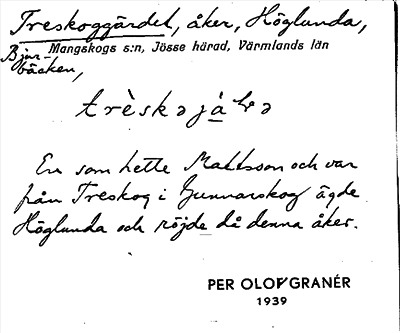 Treskoggärdet, åker, Höglunda,
Mangskogs s:n, Jösse härad, Värmlands län
Bjur-
bäcken,
En som hette Mattsson och var
från Treskog i Gunnarskog ägde
Höglunda och röjde då denna åker.
PER OLOF GRANÉR
1939